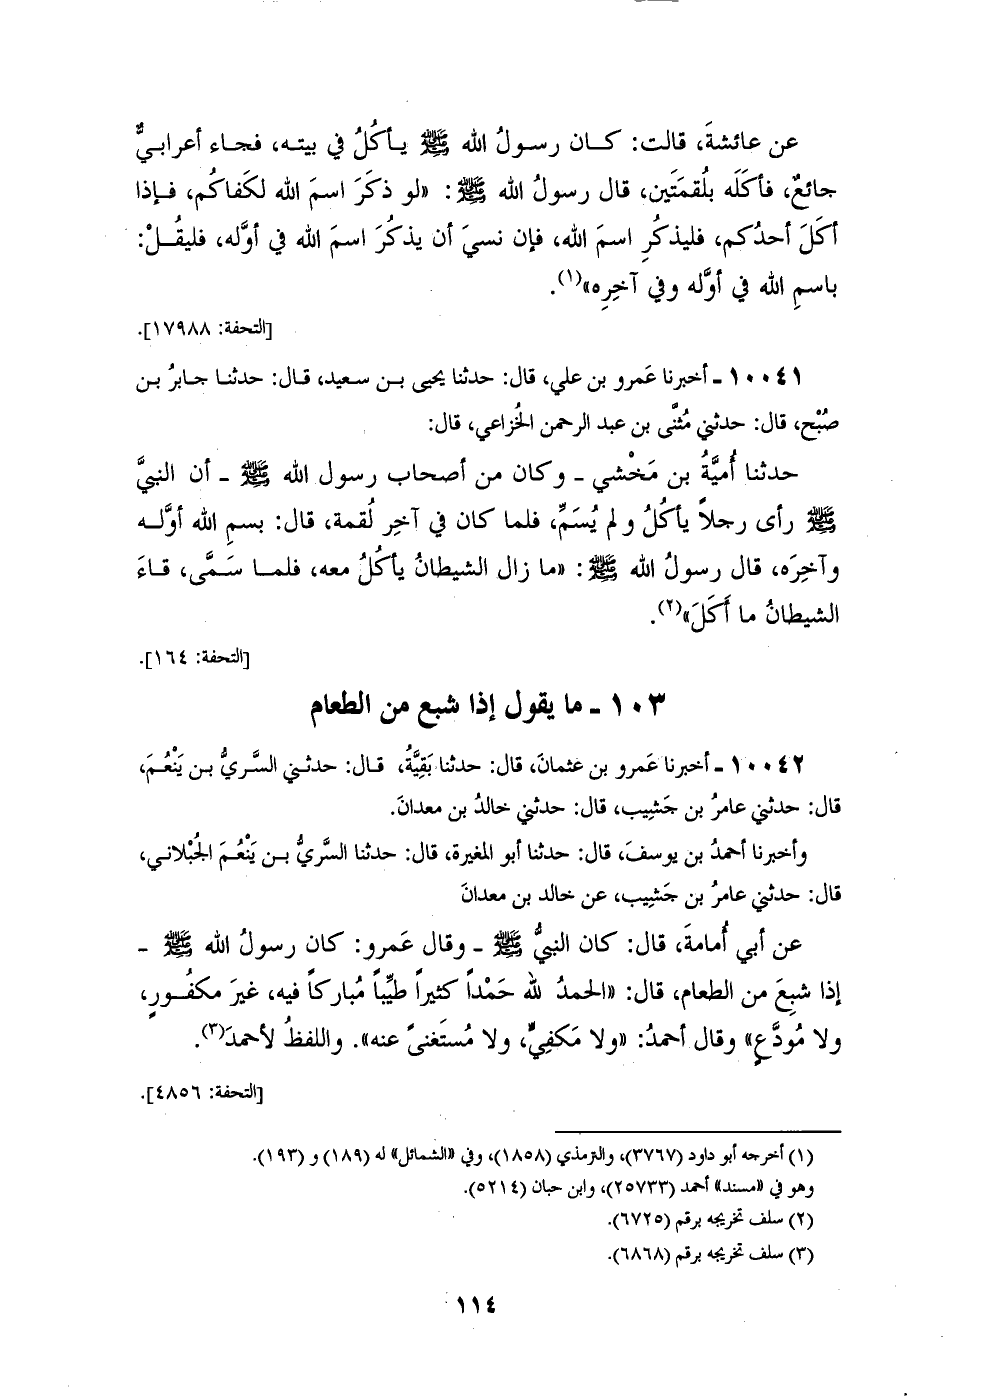 عن عائشةَ، قالت: كـان رسـولُ الله ﷺ يـأكُلُ في بيتـه، فجـاء أعرابيٌّ
جائعٌ، فأكلَه بلُقمتَين، قال رسولُ الله ﷺ: «لو ذكَرَ اسمَ الله لكَفاكُم، فـإذا
أكلَ أحدُكم، فليذكُرِ اسمَ الله، فإن نسيَ أن يذكُرَ اسمَ الله في أوَّله، فليقُـلْ:
باسمِ الله في أوَّله وفي آخِرِه»(١).
[التحفة: ١٧٩٨٨].
١٠٠٤١ ـ أخبرنا عَمرو بن علي، قال: حدثنا يحيى بـن سعيد، قـال: حدثنـا جـابرُ بـن
صُبْح، قال: حدثني مُثنَّى بن عبد الرحمن الخُزاعي، قال:
حدثنا أُميَّةُ بن مَخْشي ـ وكان من أصحاب رسول الله ﷺ ـ أن النبيَّ
ﷺ رأى رجلاً يأكُلُ و لم يُسَمِّ، فلما كان في آخِر لُقمة، قال: بسمِ الله أوَّلـه
وآخِرَه، قال رسولُ الله ﷺ: «ما زال الشيطانُ يأكُلُ معه، فلمـا سَـمَّى، قـاءَ
الشيطانُ ما أَكَلَ»(٢).
[التحفة: ١٦٤].
١٠٣ ـ ما يقول إذا شبع من الطعام
١٠٠٤٢ ـ أخبرنا عَمرو بن عثمانَ، قال: حدثنا بَقِيَّةُ، قـال: حدثـني السَّـريُّ بـن يَنْعُـمَ،
قال: حدثني عامرُ بن جَشِيب، قال: حدثني خالدُ بن معدانَ.
وأخبرنا أحمدُ بن يوسفَ، قال: حدثنا أبو المغيرة، قال: حدثنا السَّريُّ بـن يَنْعُمَ الجُبْلاني،
قال: حدثني عامرُ بن جَشِيب، عن خالد بن معدانَ
عن أبي أُمامةَ، قال: كان النبيُّ ﷺ ـ وقال عَمرو: كان رسولُ الله ﷺ ـ
إذا شبِعَ من الطعام، قال: «الحمدُ لله حَمْداً كثيراً طيِّباً مُباركاً فيه، غيرَ مكفُـورٍ،
ولا مُودَّعٍ» وقال أحمدُ: «ولا مَكفِيٍّ، ولا مُستَغنىً عنه». واللفظُ لأحمدَ(٣).
[التحفة: ٤٨٥٦].
(١) أخرجه أبو داود (٣٧٦٧)، والترمذي (١٨٥٨)، وفي «الشمائل» له (١٨٩) و (١٩٣).
وهو في «مسند» أحمد (٢٥٧٣٣)، وابن حبان (٥٢١٤).
(٢) سلف تخريجه برقم (٦٧٢٥).
(٣) سلف تخريجه برقم (٦٨٦٨).
١١٤